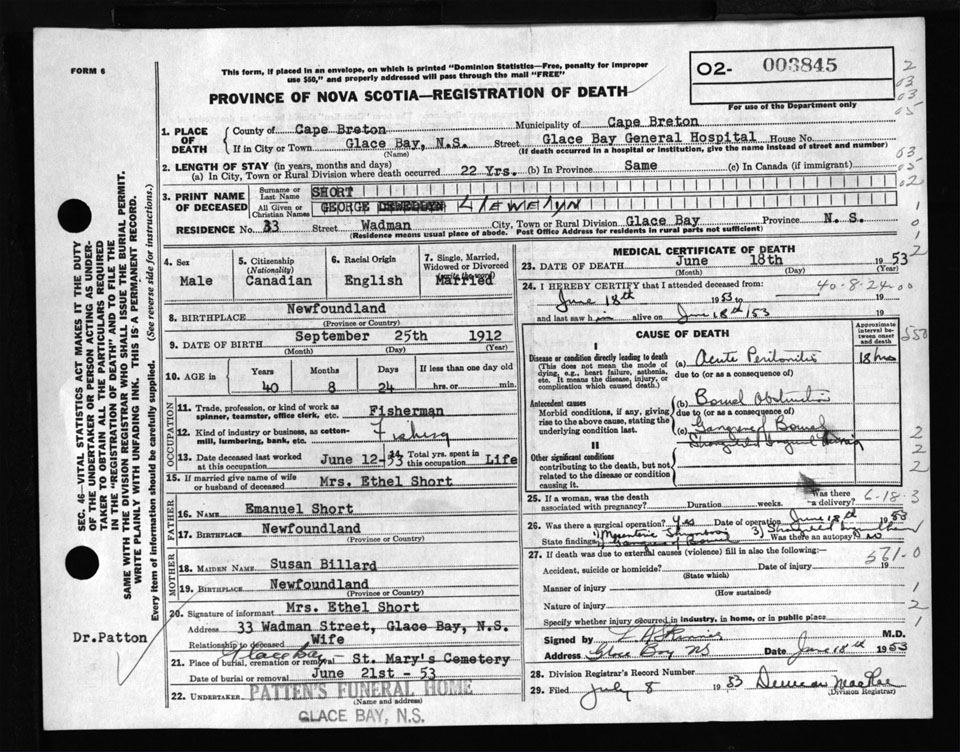 FORM 6
This form, if placed in an envelope, on which is printed "Dominion Statistics—Free, penalty for improper
use $50," and properly addressed will pass through the mail "FREE"
PROVINCE OF NOVA SCOTIA—REGISTRATION OF DEATH
02- 003845
For use of the Department only
2
03
03
05
03
05
02
1
0
1
2
1. PLACE OF DEATH
County of Cape Breton Municipality of Cape Breton
If in City or Town Glace Bay, N.S. Street Glace Bay General Hospital House No.
(Name) (If death occurred in a hospital or institution, give the name instead of street and number)
2. LENGTH OF STAY (in years, months and days)
(a) In City, Town or Rural Division where death occurred 22 Yrs. (b) In Province Same (c) In Canada (if immigrant)
3. PRINT NAME OF DECEASED
Surname or Last Name SHORT
All Given or Christian Names GEORGE LLEWELYN
RESIDENCE No. 33 Street Wadman City, Town or Rural Division Glace Bay Province N. S.
(Residence means usual place of abode. Post Office Address for residents in rural parts not sufficient)
4. Sex
Male
5. Citizenship
(Nationality)
Canadian
6. Racial Origin
English
7. Single, Married,
Widowed or Divorced
(write the word)
Married
8. BIRTHPLACE Newfoundland
(Province or Country)
9. DATE OF BIRTH September 25th 1912
(Month) (Day) (Year)
10. AGE in
Years Months Days If less than one day old
40 8 24 hrs. or min.
OCCUPATION
11. Trade, profession, or kind of work as
spinner, teamster, office clerk, etc. Fisherman
12. Kind of industry or business, as cotton-
mill, lumbering, bank, etc. Fishing
13. Date deceased last worked
at this occupation June 12-53 Total yrs. spent in this occupation Life
15. If married give name of wife
or husband of deceased Mrs. Ethel Short
FATHER
16. NAME Emanuel Short
17. BIRTHPLACE Newfoundland
(Province or Country)
MOTHER
18. MAIDEN NAME Susan Billard
19. BIRTHPLACE Newfoundland
(Province or Country)
20. Signature of informant Mrs. Ethel Short
Address 33 Wadman Street, Glace Bay, N.S.
Relationship to deceased Wife
Glace Bay -
21. Place of burial, cremation or removal St. Mary's Cemetery
Date of burial or removal June 21st - 53
22. UNDERTAKER PATTEN'S FUNERAL HOME
(Name and address)
GLACE BAY, N.S.
MEDICAL CERTIFICATE OF DEATH
23. DATE OF DEATH June 18th 1953
(Month) (Day) (Year)
24. I HEREBY CERTIFY that I attended deceased from:
40-8-24-00
June 18th 1953 to 19
and last saw him alive on June 18th/53 19
CAUSE OF DEATH
Approximate
interval be-
tween onset
and death
I
Disease or condition directly leading to death
(This does not mean the mode of
dying, e.g., heart failure, asthenia,
etc. It means the disease, injury, or
complication which caused death.)
(a) Acute Peritonitis 18 hrs
due to (or as a consequence of)
Antecedent causes
Morbid conditions, if any, giving
rise to the above cause, stating the
underlying condition last.
(b) Bowel Obstruction
due to (or as a consequence of)
(c) Gangrenous Bowel
Strangulated Inguinal Hernia
II
Other significant conditions
contributing to the death, but not
related to the disease or condition
causing it.
2
2
2
25. If a woman, was the death
associated with pregnancy? Duration weeks. Was there a delivery?
6-18-3
26. Was there a surgical operation? Yes Date of operation June 18th 1953
State findings 1) Mesenteric Thrombosis
Gangrenous Bowel
Was there an autopsy? No
27. If death was due to external causes (violence) fill in also the following:
561-0
Accident, suicide or homicide? Date of injury 19
(State which)
Manner of injury
(How sustained)
1
Nature of injury
2
Specify whether injury occurred in industry, in home, or in public place
1
Signed by M.D.
Address Glace Bay NS Date June 18th 1953
28. Division Registrar's Record Number
29. Filed July 8 1953 Duncan MacRae
(Division Registrar)
SEC. 46—VITAL STATISTICS ACT MAKES IT THE DUTY
OF THE UNDERTAKER OR PERSON ACTING AS UNDER-
TAKER TO OBTAIN ALL THE PARTICULARS REQUIRED
IN THE "REGISTRATION OF DEATH" AND TO FILE THE
SAME WITH THE DIVISION REGISTRAR WHO SHALL ISSUE THE BURIAL PERMIT.
WRITE PLAINLY WITH UNFADING INK. THIS IS A PERMANENT RECORD.
Every item of information should be carefully supplied. (See reverse side for instructions.)
Dr.Patton